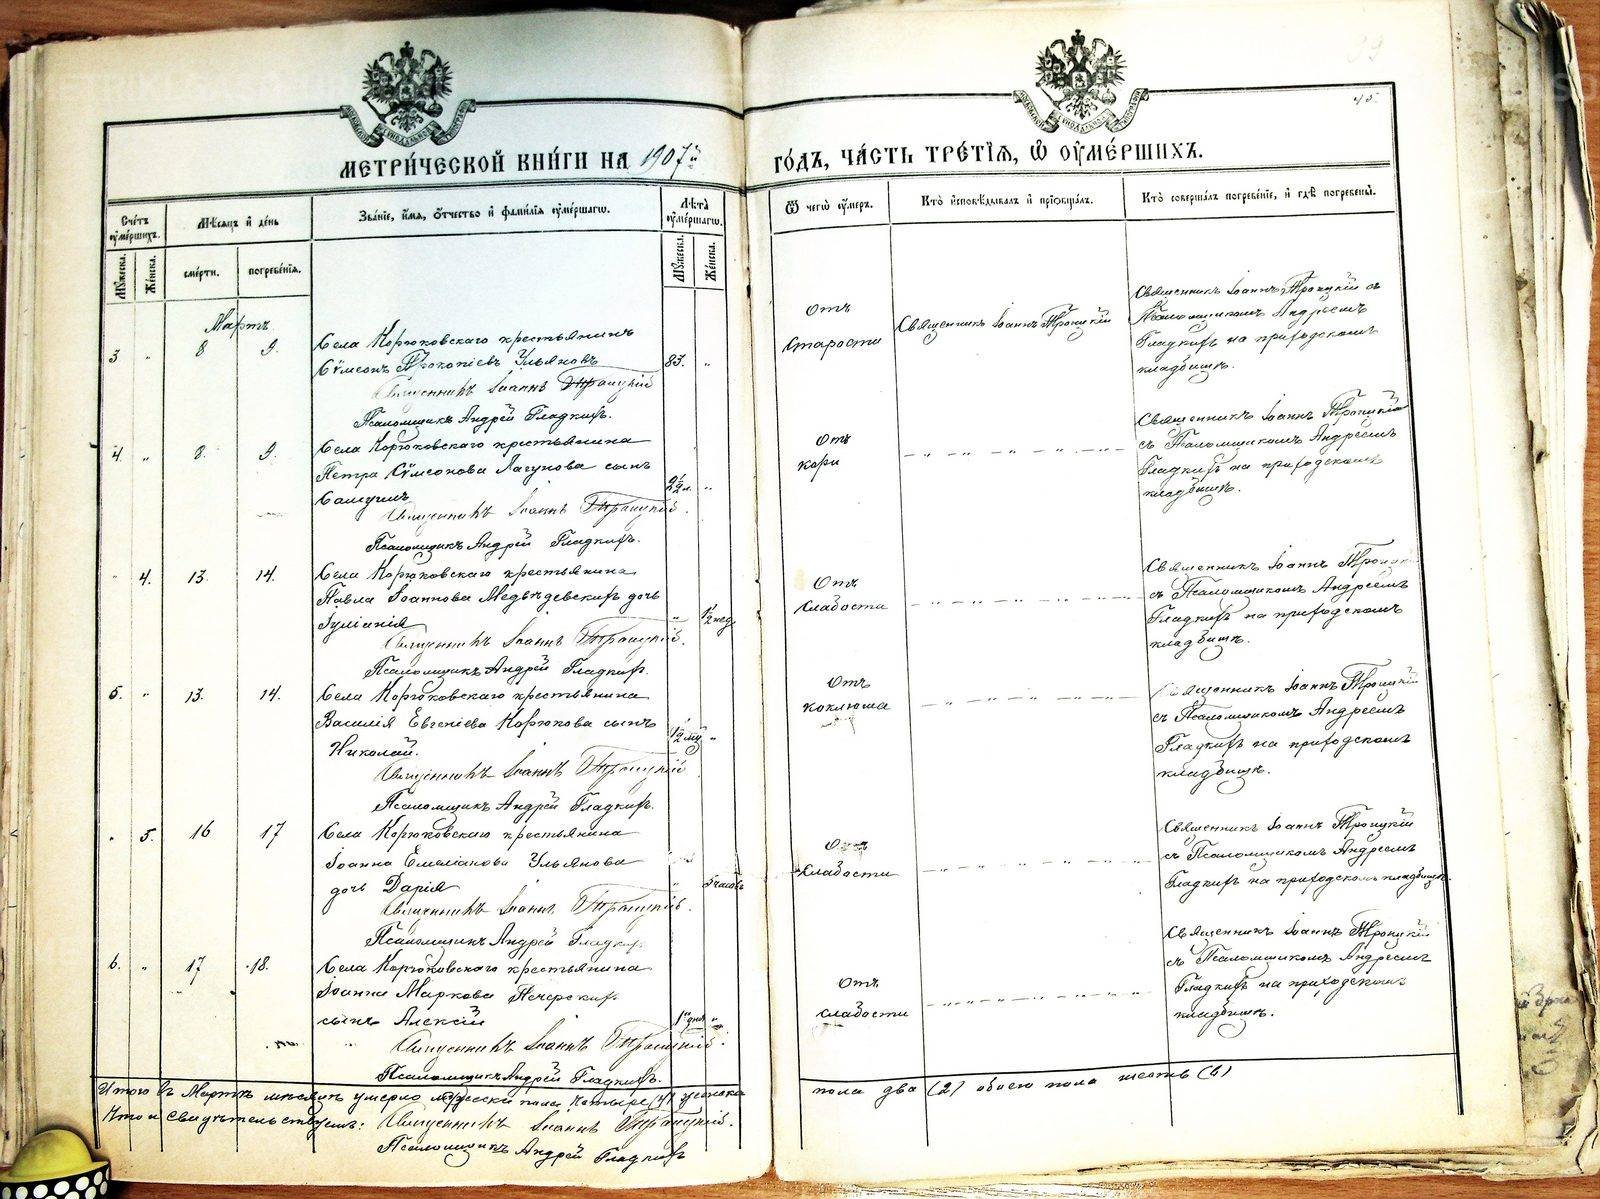 МЕТРИ́ЧЕСКОЙ КНИ́ГИ НА 1907й
ГО́ДЪ, ЧА́СТЬ ТРЕ́ТІЯ, Ѿ ОУМЕ́РШИХЪ.
45.
Счетъ оумершихъ.
Мѣсяцъ и день
Званіе, имя, отчество и фамилія оумершагѡ.
Лѣта оумершагѡ.
Ѿ чегѡ оумеръ.
Кто исповѣдывалъ и пріобщалъ.
Кто совершалъ погребеніе, и гдѣ погребены.
Мужеска.
Женска.
смерти.
погребенія.
Мужеска.
Женска.
Мартъ
3 " 8 9.
Села Корюковскаго крестьянинъ
Сѵмеонъ Прокопіевъ Ульяновъ
83. "
Священникъ Іоаннъ Троицкій
Псаломщикъ Андрей Гладкихъ.
Отъ
старости
Священникъ Іоаннъ Троицкій
Священникъ Іоаннъ Троицкій съ
Псаломщикомъ Андреемъ
Гладкихъ на приходскомъ
кладбищѣ.
4. " 8. 9.
Села Корюковскаго крестьянина
Петра Сѵмеонова Лагунова сынъ
Самуилъ
2½ л. "
Священникъ Іоаннъ Троицкій.
Псаломщикъ Андрей Гладкихъ.
Отъ
кори
Священникъ Іоаннъ Троицкій
съ Псаломщикомъ Андреемъ
Гладкихъ на приходскомъ
кладбищѣ.
" 4. 13. 14.
Села Корюковскаго крестьянина
Павла Іоаннова Медвѣдевскихъ дочь
Іуліанія
" 1½ нед.
Священникъ Іоаннъ Троицкій.
Псаломщикъ Андрей Гладкихъ.
Отъ
слабости
Священникъ Іоаннъ Троицкій
съ Псаломщикомъ Андреемъ
Гладкихъ на приходскомъ
кладбищѣ.
5. " 13. 14.
Села Корюковскаго крестьянина
Василія Евгеніева Корюкова сынъ
Николай.
Священникъ Іоаннъ Троицкій
Псаломщикъ Андрей Гладкихъ.
Отъ
коклюша
Священникъ Іоаннъ Троицкій
съ Псаломщикомъ Андреемъ
Гладкихъ на приходскомъ
кладбищѣ.
" 5. 16 17
Села Корюковскаго крестьянина
Іоанна Емеліанова Ульянова
дочь Дарія
" 5 часовъ
Священникъ Іоаннъ Троицкій.
Псаломщикъ Андрей Гладкихъ
Отъ
слабости
Священникъ Іоаннъ Троицкій
съ Псаломщикомъ Андреемъ
Гладкихъ на приходскомъ кладбищѣ.
6. " 17 18.
Села Корюковскаго крестьянина
Іоанна Маркова Печерскихъ
сынъ Алексій
"
Священникъ Іоаннъ Троицкій.
Псаломщикъ Андрей Гладкихъ.
Отъ
слабости
Священникъ Іоаннъ Троицкій
съ Псаломщикомъ Андреемъ
Гладкихъ на приходскомъ
кладбищѣ.
Итого въ Мартѣ мѣсяцѣ умерло мужеска пола четыре (4) женска
пола два (2) обоего пола шесть (6)
Что и свидѣтельствуемъ: Священникъ Іоаннъ Троицкій.
Псаломщикъ Андрей Гладкихъ